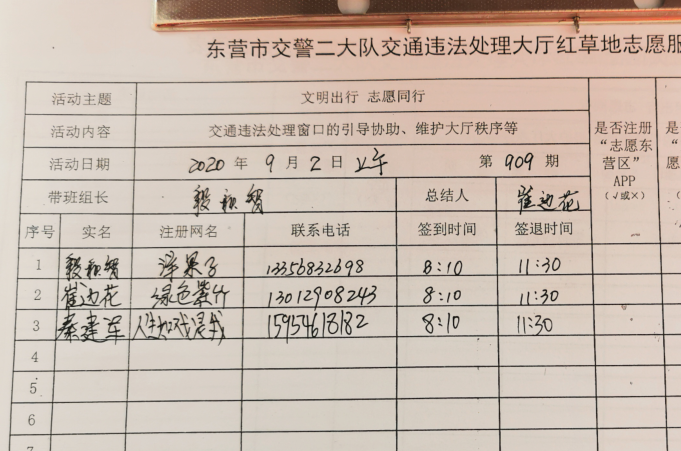 东营市交警二大队交通违法处理大厅红草地志愿服
活动主题 文明出行 志愿同行
活动内容 交通违法处理窗口的引导协助、维护大厅秩序等
活动日期 2020 年 9 月 2 日 上午 第 909 期
带班组长 总结人 崔边花
是否注册
“志愿东
营区”
APP
(√或×)
序号 实名 注册网名 联系电话 签到时间 签退时间
1 洋果子 13356832698 8:10 11:30
2 崔边花 绿色紫竹 13012908243 8:10 11:30
3 秦建军 人生如戏是我 15954618182 8:10 11:30
4
5
6